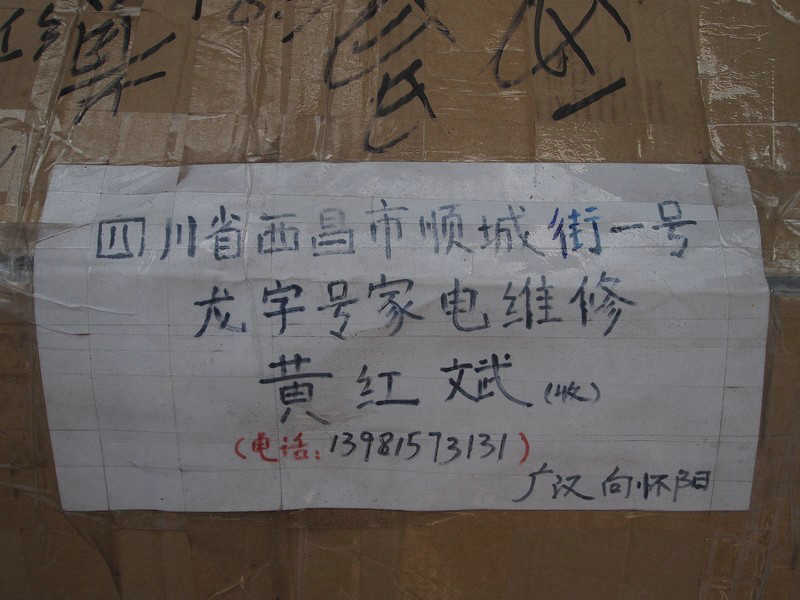 四川省西昌市顺城街一号
龙字号家电维修
黄红斌(收)
(电话:13981573131)
广汉 向怀阳